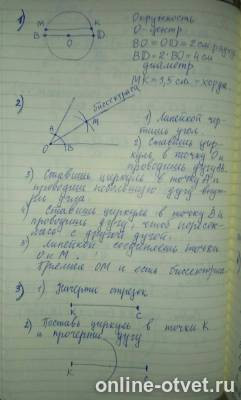 1)
M K
B O D
Окружность
О - центр
BO = OD = 2 см радиус
BD = 2·BO = 4 см
диаметр
MK = 3,5 см - хорда
2)
биссектриса
A M
O B
1) Линейкой чер-
тишь угол.
2) Ставишь цир-
куль в точку О и
проводишь дугу
3) Ставишь циркуль в точку А и
проводишь небольшую дугу внут-
ри угла
4) Ставишь циркуль в точку В и
проводишь дугу, чтоб пересек-
лась с другой дугой.
5) Линейкой соединяешь точки
О и М.
Прямая ОМ и есть биссектриса
3) 1) Начерти отрезок
K C
2) Поставь циркуль в точки К
и прочерти дугу
K
online-otvet.ru